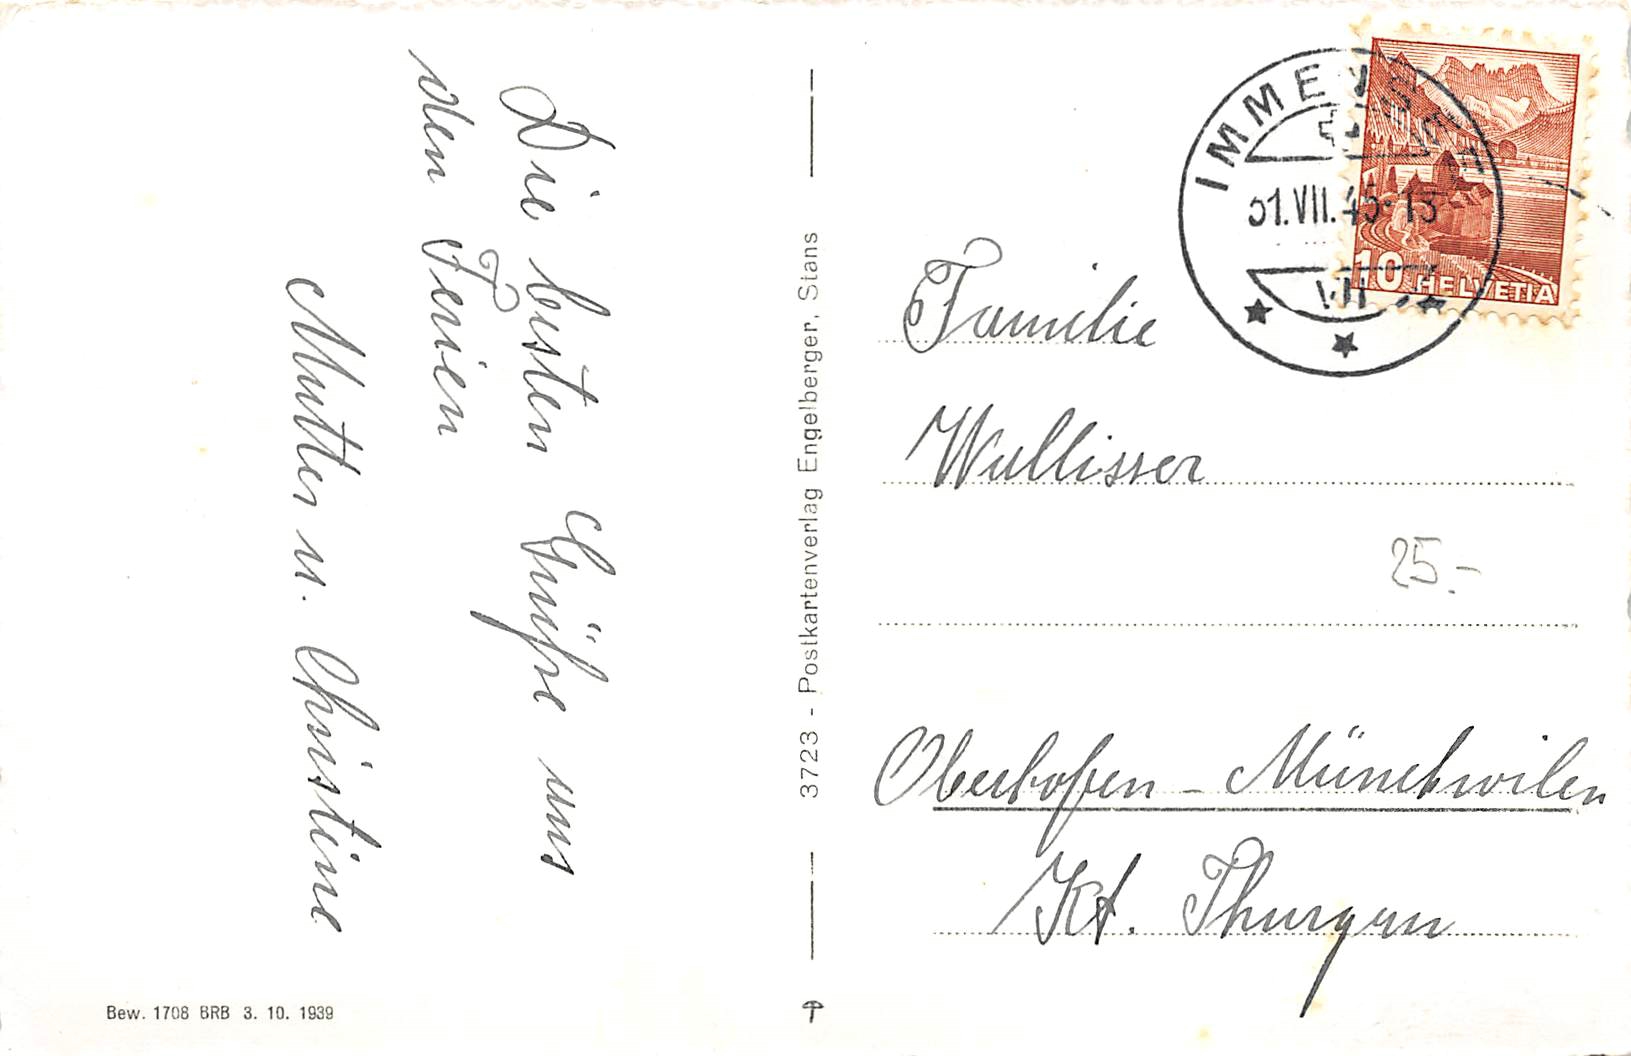 Die besten Grüße aus
den Ferien
Mutter u. Christine
3723 - Postkartenverlag Engelberger, Stans
Bew. 1708 BRB 3. 10. 1939
IMMENSEE
31.VII.45-13
VII
10 HELVETIA
Familie
Wallisser
25.-
Oberhofen - Münchwilen
Kt. Thurgau